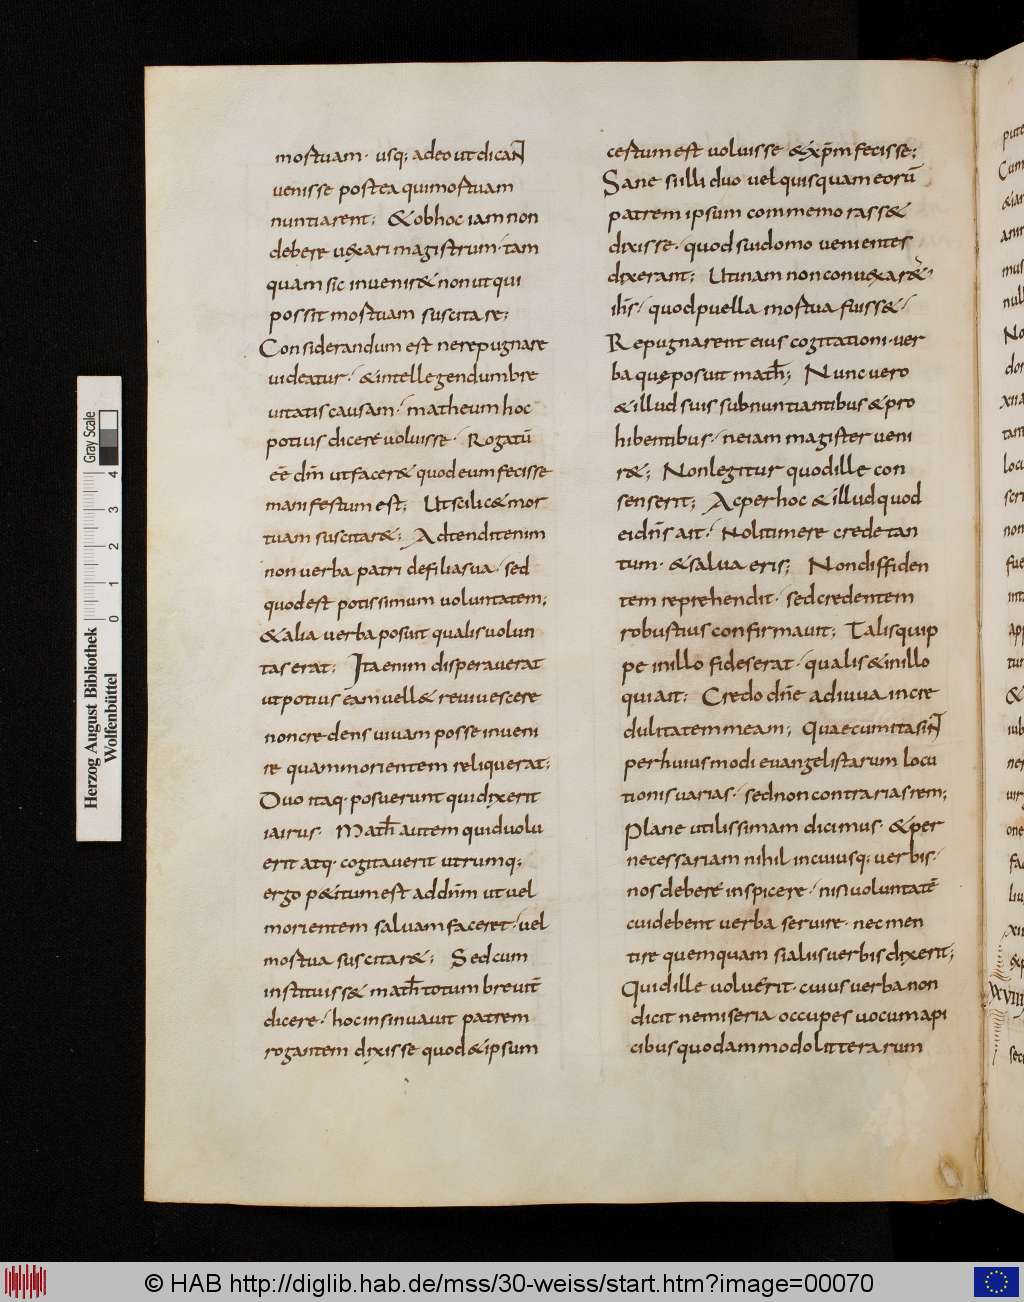 mortuam · usq; adeo ut dicaN̄
uenisse postea qui mortuam
nuntiarent; & ob hoc iam non
debere uexari magistrum · tam
quam sic inuenir& non ut qui
possit mortuam suscitare;
Considerandum est ne repugnare
uideatur · & intellegendum bre
uitatis causam · matheum hoc
potius dicere uoluisse · Rogatū
eē dn̄m ut facer& quod eum fecisse
manifestum est; Ut scilic& mor
tuam suscitar&; Adtendit enim
non uerba patri de filia sua · sed
quod est potissimum uoluntatem;
& alia uerba posuit qualis uolun
tas erat; Ita enim disperauerat
ut potius eam uell& reuiuescere
non credens uiuam posse inueni
re quam morientem reliquerat;
Duo itaq · posuerunt qui dixerit
iairus · Math̄ autem quid uolu
erit atq · cogitauerit utrumq;
ergo p&itum est ad dn̄m ut uel
morientem saluam faceret · uel
mortua suscitar&; Sed cum
instituiss& math̄ totum breuit̄
dicere · hoc insinuauit patrem
rogantem dixisse quod & ipsum
certum est uoluisse & xp̄m fecisse;
Sane si illi duo uel quisquam eorū
patrem ipsum commemorass&
dixisse · quod sui domo uenientes
dixerant; Ut iam non conuexar&
ih̄s · quod puella mortua fuiss& ·
Repugnarent eius cogitationi · uer
ba quę posuit math̄; Nunc uero
& illud suis subnuntiantibus & pro
hibentibus · ne iam magister ueni
r&; Non legitur quod ille con
senserit; Ac per hoc & illud quod
ei dn̄s ait · Noli timere crede tan
tum · & salua eris; Non diffiden
tem reprehendit · sed credentem
robustius confirmauit; Talis quip
pe in illo fides erat · qualis & in illo
qui ait · Credo dn̄e adiuua incre
dulitatem meam; Quae cum ita siN̄
per huiusmodi euangelistarum locu
tionis uarias · sed non contrarias rem;
Plane utilissimam dicimus · & per
necessariam nihil in cuiusq; uerbis ·
nos debere inspicere · nisi uoluntatē
cui debent uerba seruire · nec men
tire quemquam si aliis uerbis dixerit;
Quid ille uoluerit · cuius uerba non
dicit ne miseria occupes uocum api
cibus quodammodo litterarum
Herzog August Bibliothek
Wolfenbüttel
Gray Scale
0 1 2 3 4
© HAB http://diglib.hab.de/mss/30-weiss/start.htm?image=00070